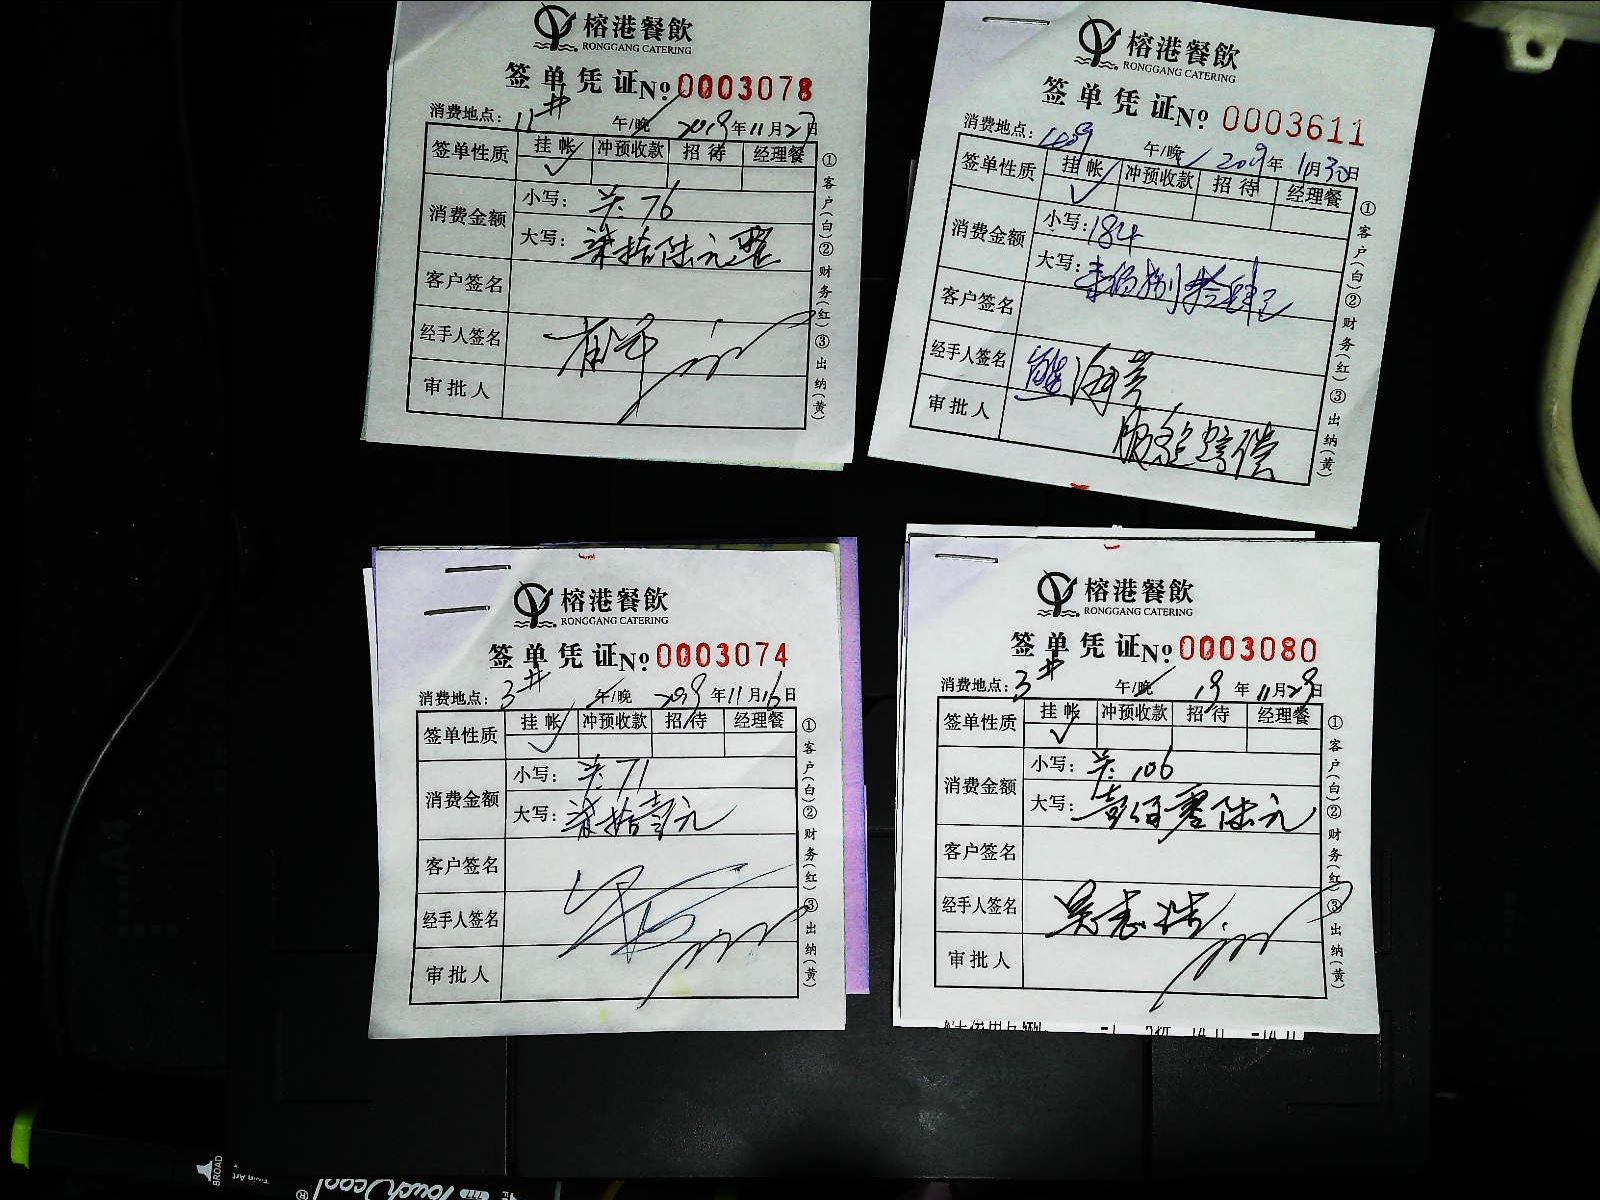 榕港餐飲
RONGGANG CATERING
签单凭证 No 0003078
消费地点: 11# 午/晚 2019年11月27日
签单性质 挂帐 冲预收款 招待 经理餐
✓
消费金额 小写: 76
大写: 柒拾陆元整
客户签名
经手人签名
审批人
①客户(白)②财务(红)③出纳(黄)
榕港餐飲
RONGGANG CATERING
签单凭证 No 0003611
消费地点: 午/晚 2019年11月30日
签单性质 挂帐 冲预收款 招待 经理餐
✓
消费金额 小写: 184
大写: 壹佰捌拾肆元
客户签名
经手人签名 熊海英
审批人 赔偿
①客户(白)②财务(红)③出纳(黄)
榕港餐飲
RONGGANG CATERING
签单凭证 No 0003074
消费地点: 3# 午/晚 2019年11月16日
签单性质 挂帐 冲预收款 招待 经理餐
✓
消费金额 小写: 71
大写: 柒拾壹元
客户签名
经手人签名
审批人
①客户(白)②财务(红)③出纳(黄)
榕港餐飲
RONGGANG CATERING
签单凭证 No 0003080
消费地点: 3# 午/晚 19年11月29日
签单性质 挂帐 冲预收款 招待 经理餐
✓
消费金额 小写: 106
大写: 壹佰零陆元
客户签名
经手人签名 吴志浩
审批人
①客户(白)②财务(红)③出纳(黄)
BROAD
Twin Art
Touch cool